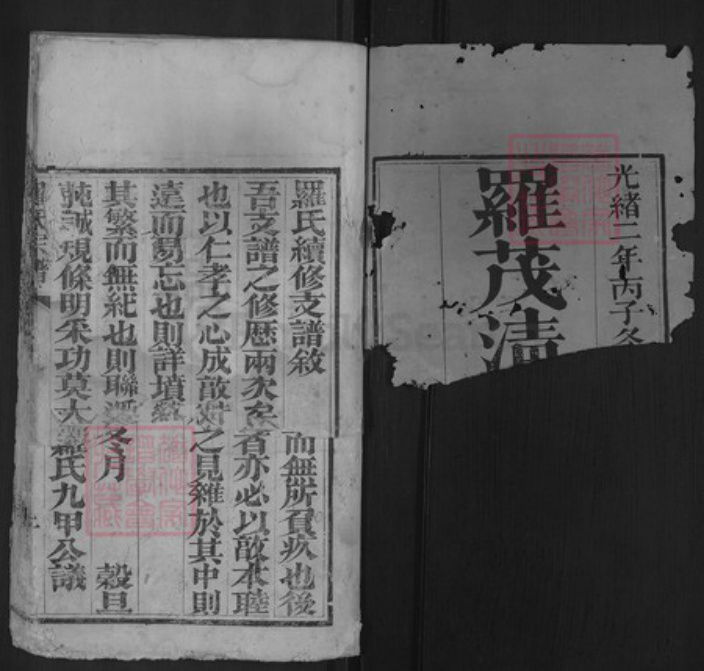 光緒二年丙子冬
羅茂清
羅氏續修支譜敘
吾支譜之修歷兩次矣
也以仁孝之心成敵對
遠而易忘也則詳墳
其繁而無紀也則聯
規條明采功莫大
而無所負疚也後
者亦必以敵本睦
之見雜於其中則
冬月 穀旦
羅氏九甲公議